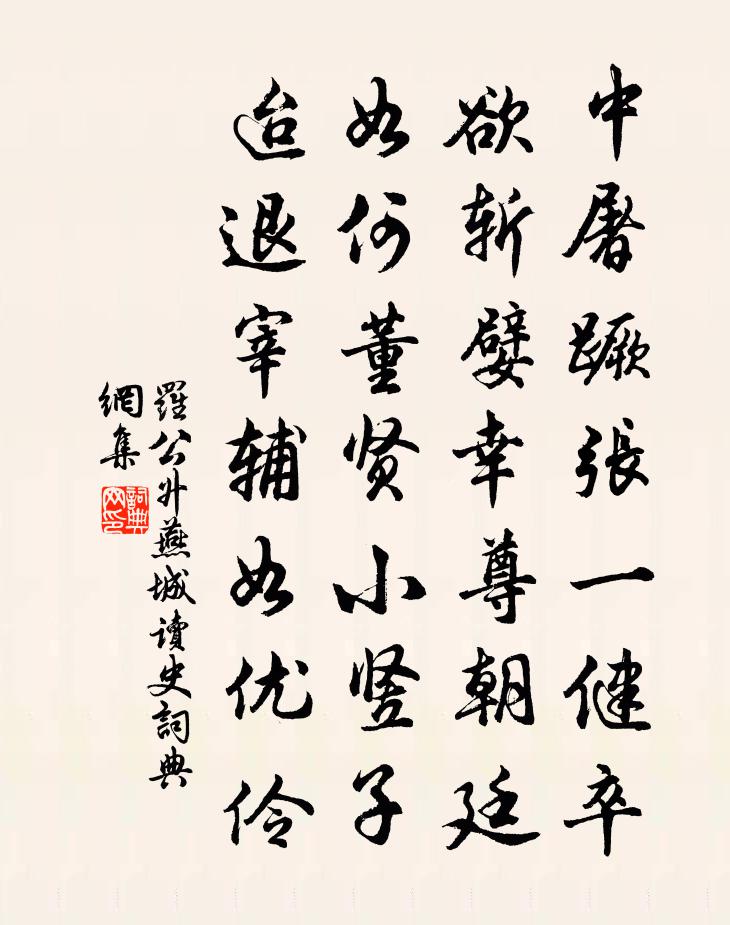 中屠蹶張一健卒
欲斩嬖幸尊朝廷
如何董贤小竖子
迨退宰辅如优伶
羅公升燕城讀史詞典
網集
詞典网印